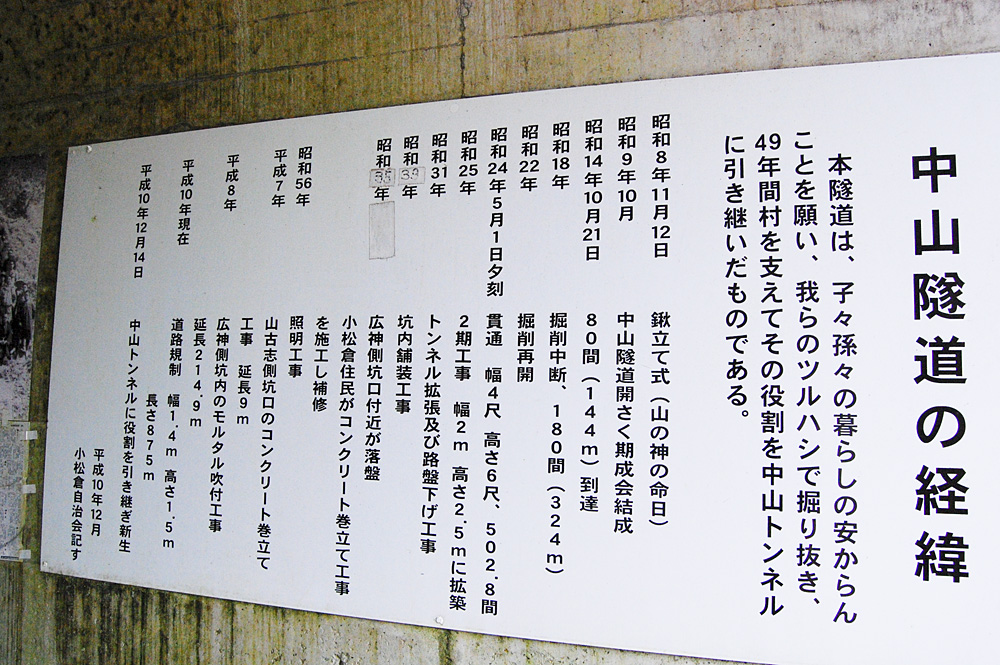 中山隧道の経緯
本隧道は、子々孫々の暮らしの安からん
ことを願い、我らのツルハシで掘り抜き、
49年間村を支えてその役割を中山トンネル
に引き継いだものである。
昭和8年11月12日 鍬立て式（山の神の命日）
昭和9年10月 中山隧道開さく期成会結成
昭和14年10月21日 80間（144m）到達
昭和18年 掘削中断、180間（324m）
昭和22年 掘削再開
昭和24年5月1日夕刻 貫通 幅4尺 高さ6尺、502.8間
昭和25年 2期工事 幅2m 高さ2.5mに拡築
昭和31年 トンネル拡張及び路盤下げ工事
昭和33年 坑内舗装工事
昭和35年 広神側坑口付近が落盤
小松倉住民がコンクリート巻立て工事
を施工し補修
昭和56年 照明工事
平成7年 山古志側坑口のコンクリート巻立て
工事 延長9m
平成8年 広神側坑内のモルタル吹付工事
延長214.9m
平成10年現在 道路規制 幅1.4m 高さ1.5m
長さ875m
平成10年12月14日 中山トンネルに役割を引き継ぎ新生
平成10年12月
小松倉自治会記す